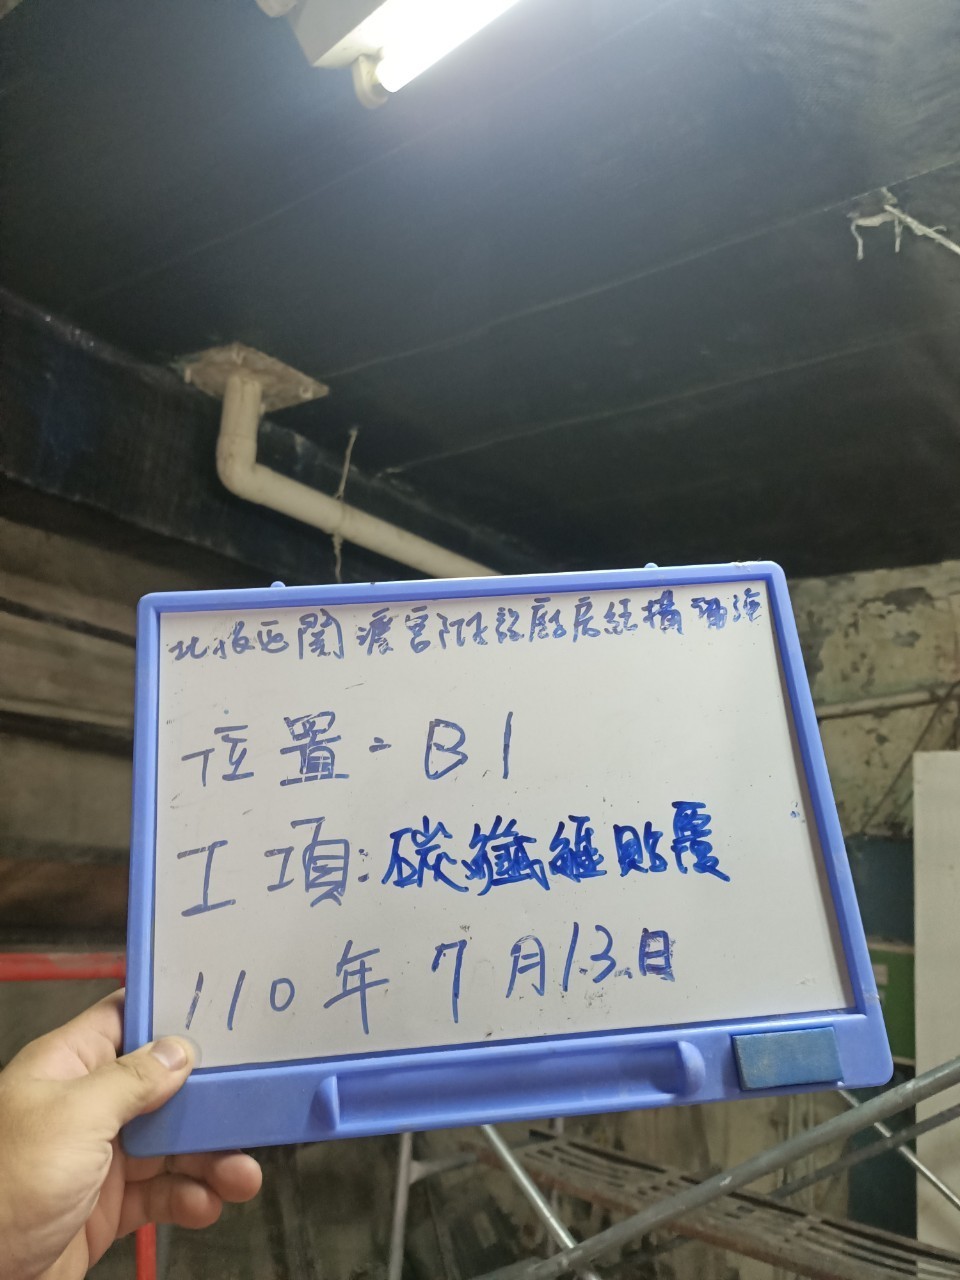 北投區關渡宮附設廚房結構補強
位置:B1
工項:碳纖維貼覆
110年7月13日